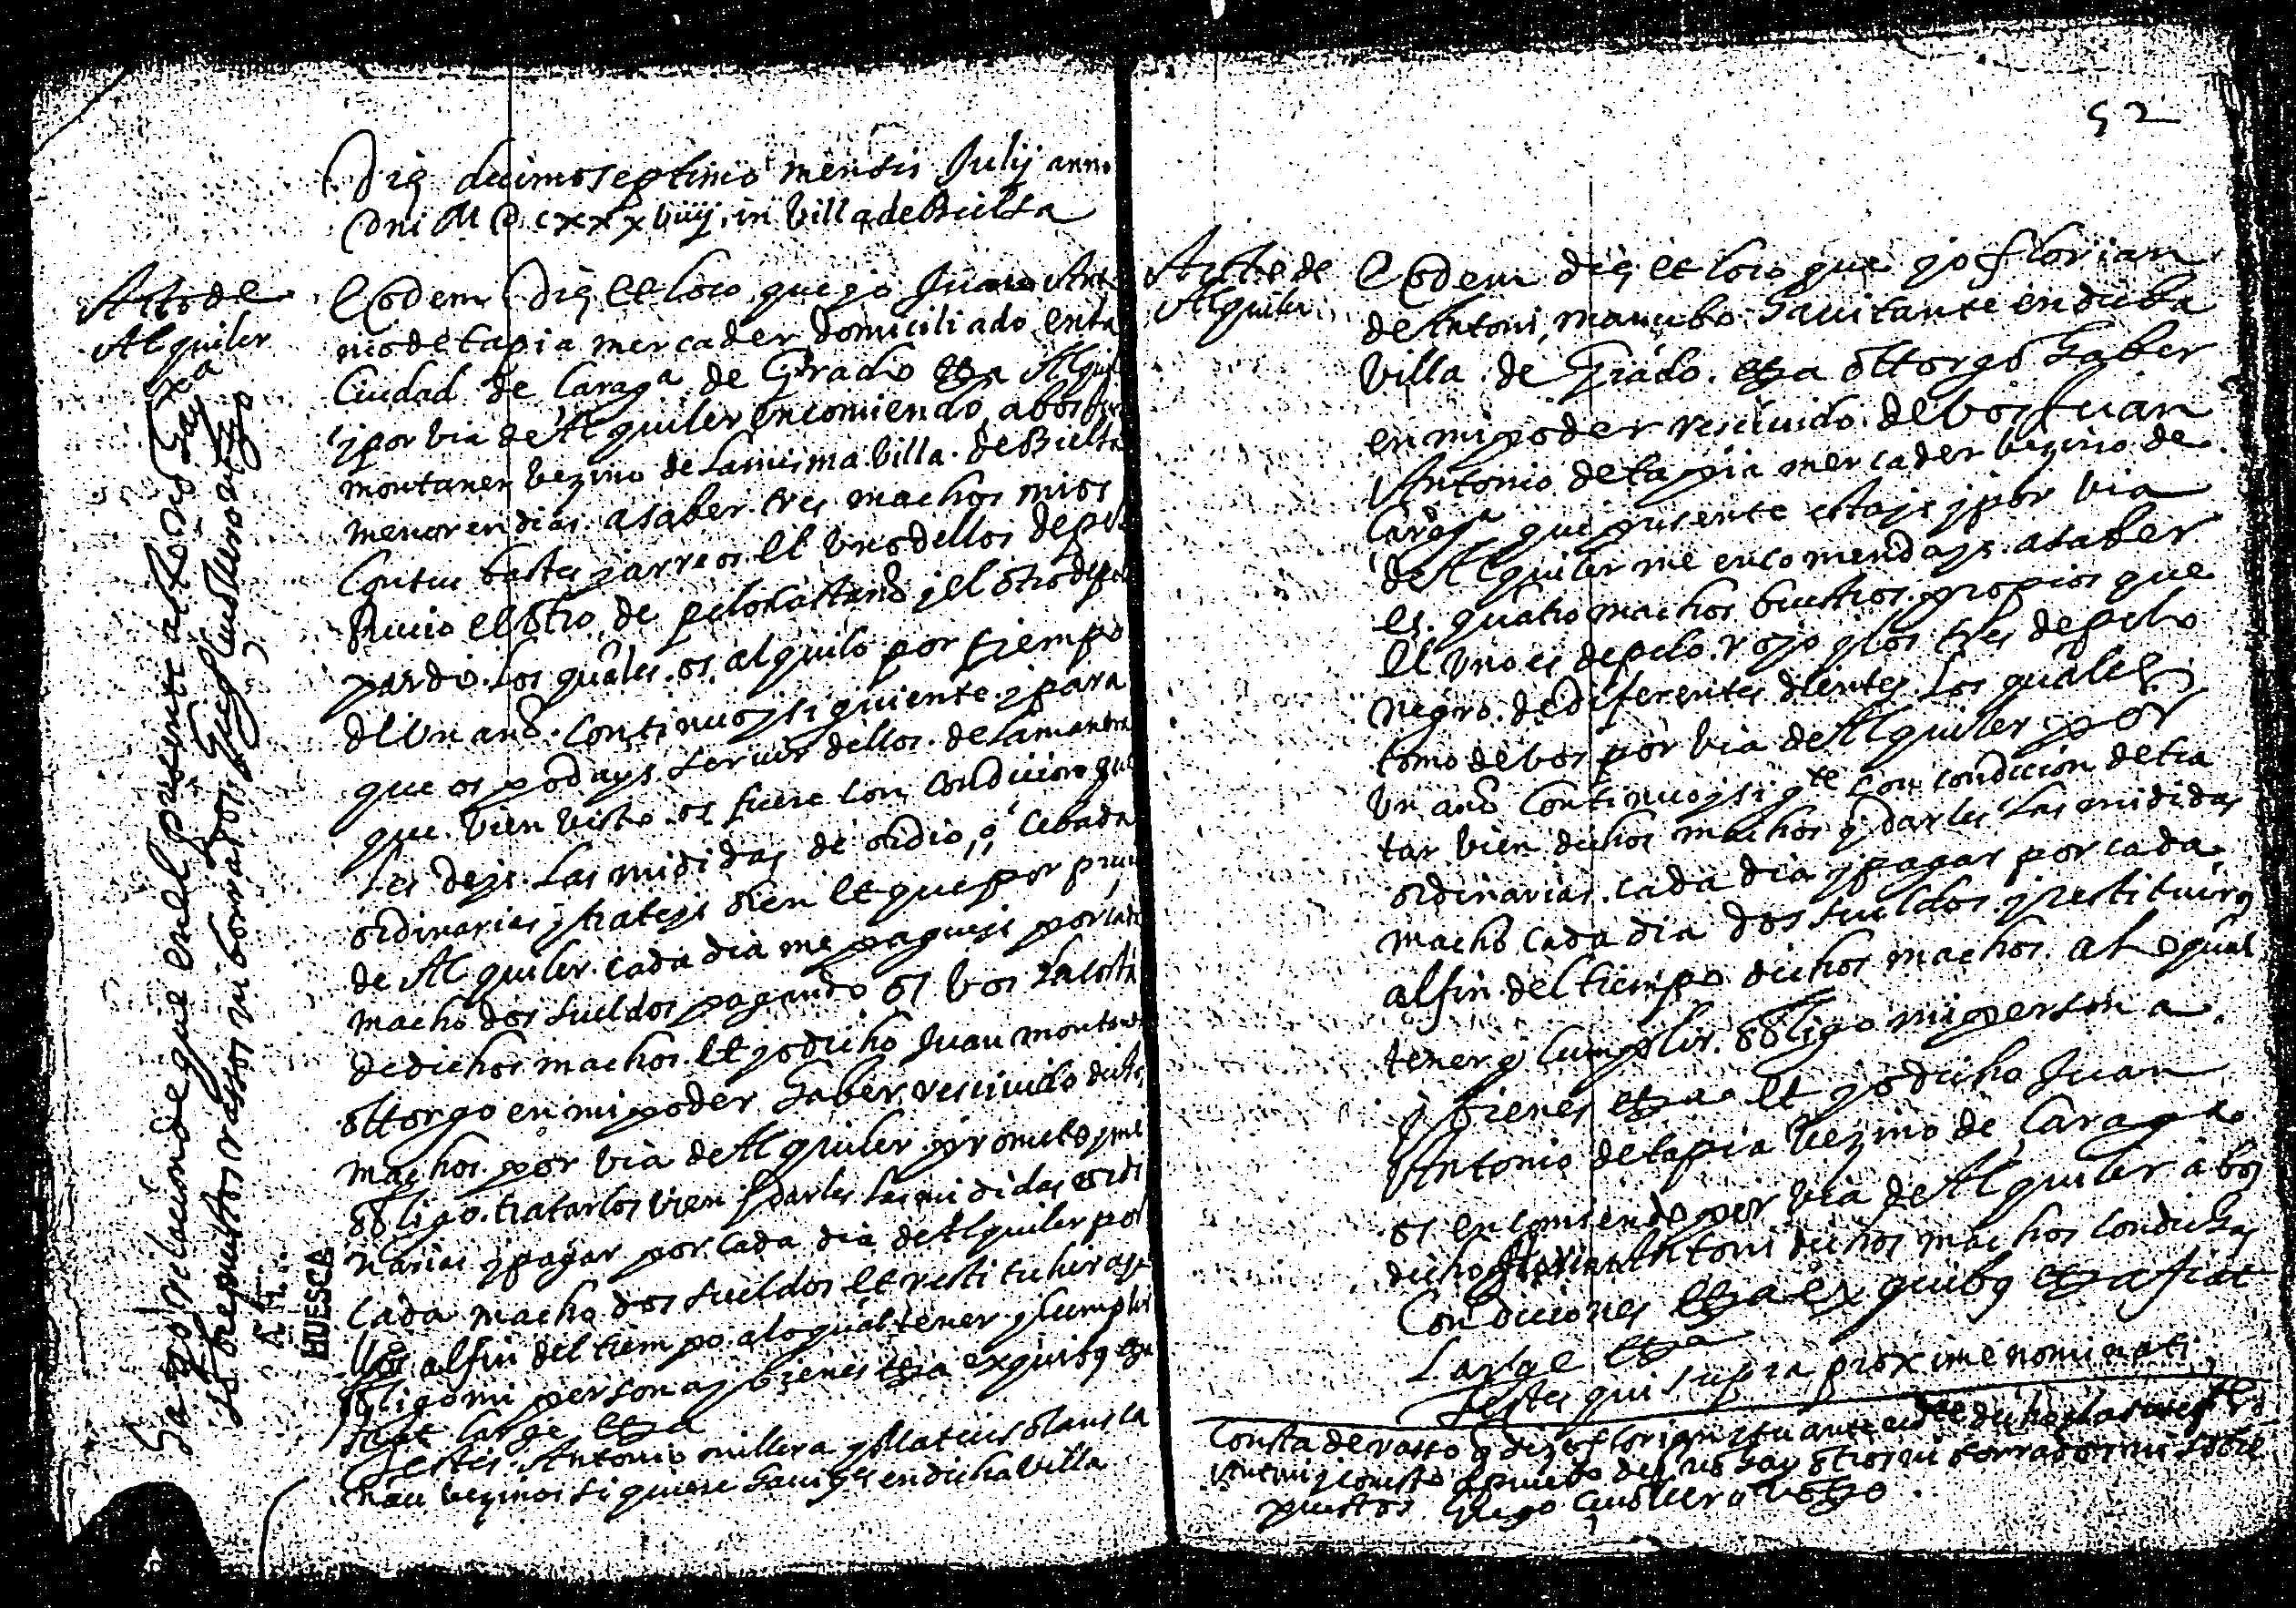 Die decimoseptimo mensis Julij anno
Dni M D c xxx viiij in villa de Bielsa
Acto de
Alquiler
Eodem Die et loco que yo Juan Anto
nio de tapia mercader domiciliado en la
Ciudad de Carag.a de Grado etza Alqui
y por via de Alquiler encomiendo a bos
montaner bezino de la misma villa de Bielsa
menor en dias a saber tres machos mios
Con sus bastes y arreos el uno dellos de pelo
Rucio el otro de pelo castano y el otro de pelo
pardo los quales os alquilo por tiempo
de un ano continuo y siguiente y para
que os podays servir dellos de la manera
que bien visto os fuere con condicion que
Les deys las midides de ordio o cebada
ordinarias y trateys bien et que por
de Alquiler cada dia me pagueys por cada
macho dos sueldos pagando os bos la costa
de dichos machos et yo dicho Juan montaner
ottorgo en mi poder haber rescivido dichos
machos por via de Alquiler y prometo y me
obligo tratarlos bien y darles las midides ordi
narias y pagar por cada dia de Alquiler por
cada macho dos sueldos et restituhir aque
llos al fin del tiempo a lo qual tener y cumplir
obligo mi persona y bienes etza ex quibus etza
fiat large etza
Testes Antonio millera y Mateu
vezinos si quiere havi.es en dicha villa
Hago relacion de que en el presente acto no hay
sobrepuestos rasos ni borrados
A.H.
HUESCA
52
Acto de
Alquiler
Eodem die et loco que yo Florian
de Antoni mancebo havitante en dicha
villa de Grado etza ottorgo haber
en mi poder rescivido de bos Juan
Antonio de tapia mercader bezino de
Carag.a que presente estays y por via
de Alquiler me encomendays a saber
es quatro machos buestros propios que
el uno es de pelo rojo y los tres de pelo
negro de diferentes dientes los quales
tomo de bos por via de Alquiler por
un ano continuo y sig.te con condicion de tra
tar bien dichos machos y darles las mididas
ordinarias cada dia y pagar por cada
macho cada dia dos sueldos y restituiros
al fin del tiempo dichos machos a lo qual
tener y cumplir obligo mi persona
y bienes etza et yo dicho Juan
Antonio de tapia bezino de Carag.a
os encomiendo por via de Alquiler a bos
dicho Florian Antoni dichos machos con dichas
Condiciones etza ex quibus etza fiat
Large etza
Testes qui supra proxime nominati
Consta de rasso q dize florian
Antoni y consto no hay otros ni borrados ni sobre
puestos